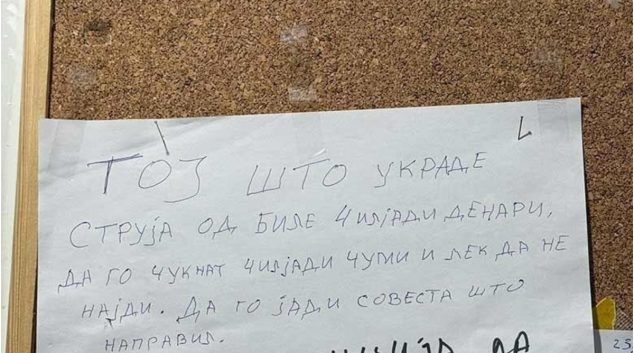 ТОЈ ШТО УКРАДЕ
СТРУЈА ОД БИЛЕ ЧИЛЈАДИ ДЕНАРИ,
ДА ГО ЧУКНАТ ЧИЛЈАДИ ЧУМИ И ЛЕК ДА НЕ
НАЈДИ. ДА ГО ЈАДИ СОВЕСТА ШТО
НАПРАВИЛ.
ДА
25